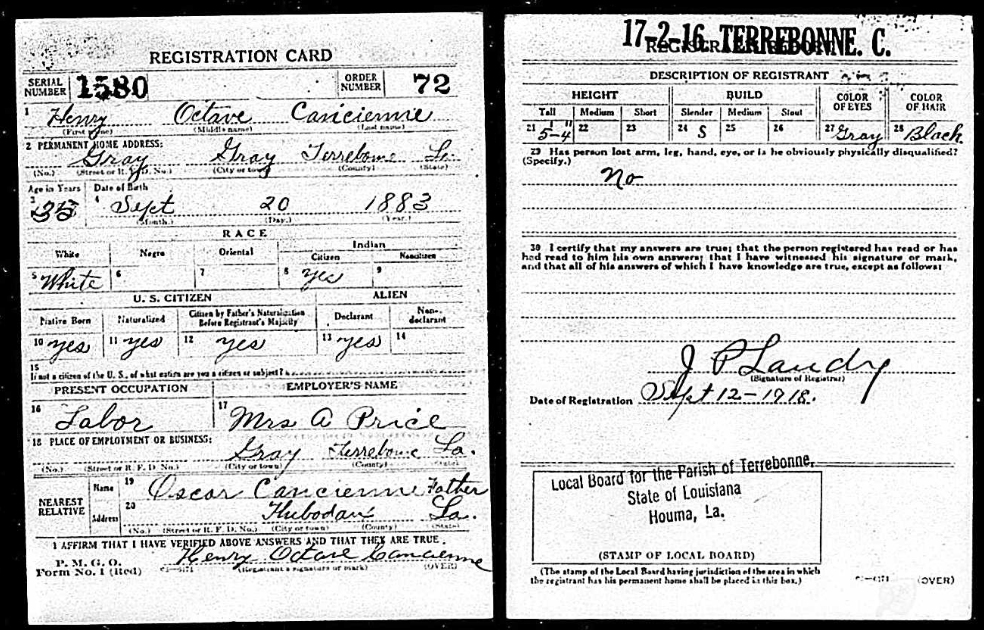 REGISTRATION CARD
SERIAL NUMBER 1580 ORDER NUMBER 72
1 Henry Octave Cancienne
(First name) (Middle name) (Last name)
2 PERMANENT HOME ADDRESS:
Gray Gray Terrebonne La.
(No.) (Street or R. F. D. No.) (City or town) (County) (State)
Age in Years Date of Birth
3 35 4 Sept 20 1883
(Month.) (Day.) (Year.)
RACE
White Negro Oriental Indian
Citizen Noncitizen
5 White 6 7 8 yes 9
U. S. CITIZEN ALIEN
Native Born Naturalized Citizen by Father's Naturalization Before Registrant's Majority Declarant Non-declarant
10 yes 11 yes 12 yes 13 yes 14
15
If not a citizen of the U. S., of what nation are you a citizen or subject?
PRESENT OCCUPATION EMPLOYER'S NAME
16 Labor 17 Mrs A Price
18 PLACE OF EMPLOYMENT OR BUSINESS:
Gray Terrebonne La.
(No.) (Street or R. F. D. No.) (City or town) (County) (State)
NEAREST RELATIVE Name 19 Oscar Cancienne Father
Address 20 La.
(No.) (Street or R. F. D. No.) (City or town) (County) (State)
I AFFIRM THAT I HAVE VERIFIED ABOVE ANSWERS AND THAT THEY ARE TRUE.
P. M. G. O.
Form No. 1 (Red) Henry Octave Cancienne
(Registrant's signature or mark) (OVER)
17-2-16 TERREBONNE. C.
DESCRIPTION OF REGISTRANT
HEIGHT BUILD COLOR OF EYES COLOR OF HAIR
Tall Medium Short Slender Medium Stout
21 5'-4" 22 23 24 S 25 26 27 Gray 28 Black
29 Has person lost arm, leg, hand, eye, or is he obviously physically disqualified?
(Specify.)
No
30 I certify that my answers are true; that the person registered has read or has
had read to him his own answers; that I have witnessed his signature or mark,
and that all of his answers of which I have knowledge are true, except as follows:
J P Landry
(Signature of Registrar)
Date of Registration Sept 12-1918.
Local Board for the Parish of Terrebonne,
State of Louisiana
Houma, La.
(STAMP OF LOCAL BOARD)
(The stamp of the Local Board having jurisdiction of the area in which
the registrant has his permanent home shall be placed in this box.)
(OVER)